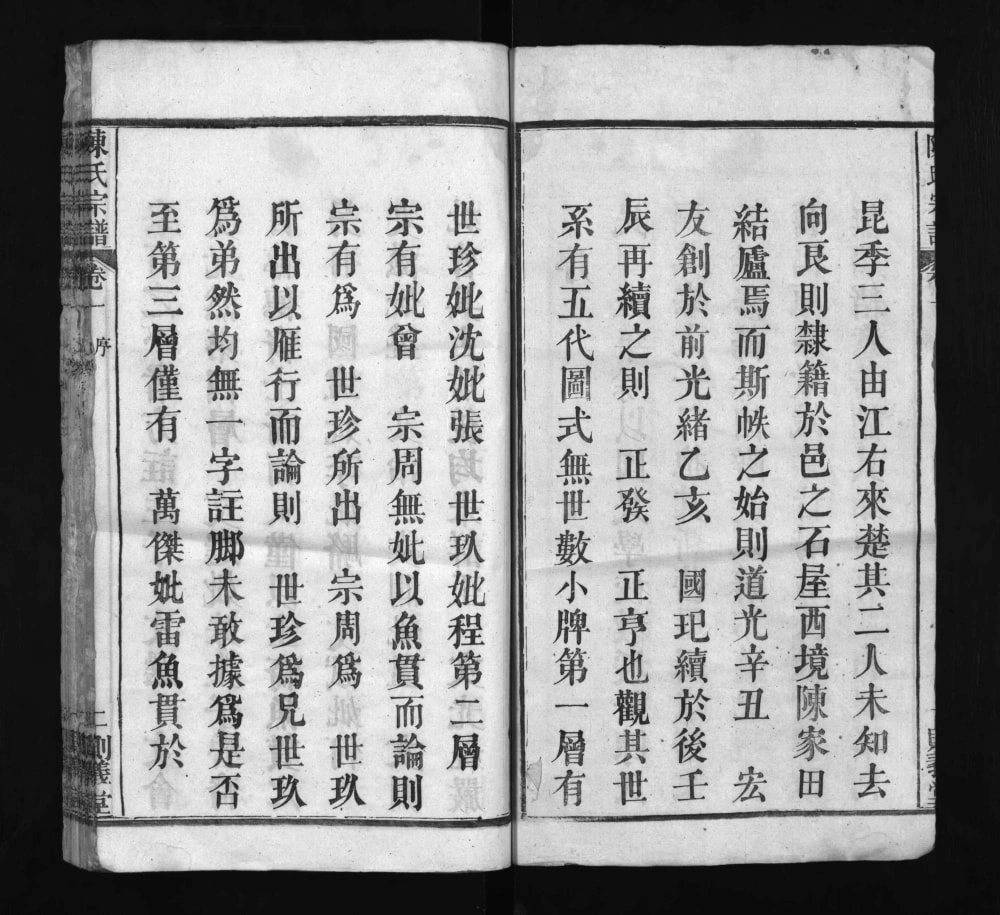 昆季三人由江右來楚其二人未知去
向艮則隸籍於邑之石屋西境陳家田
結廬焉而斯帙之始則道光辛丑 宏
友創於前光緒乙亥 國玘續於後壬
辰再續之則 正發 正亨也觀其世
系有五代圖式無世數小牌第一層有
世珍妣沈妣張 世玖妣程第二層
宗有妣曾 宗周無妣以魚貫而論則
宗有爲 世珍所出 宗周爲 世玖
所出以雁行而論則 世珍爲兄世玖
爲弟然均無一字註脚未敢據爲是否
至第三層僅有 萬傑妣雷魚貫於
陳氏宗譜
卷一 序
二 則義堂